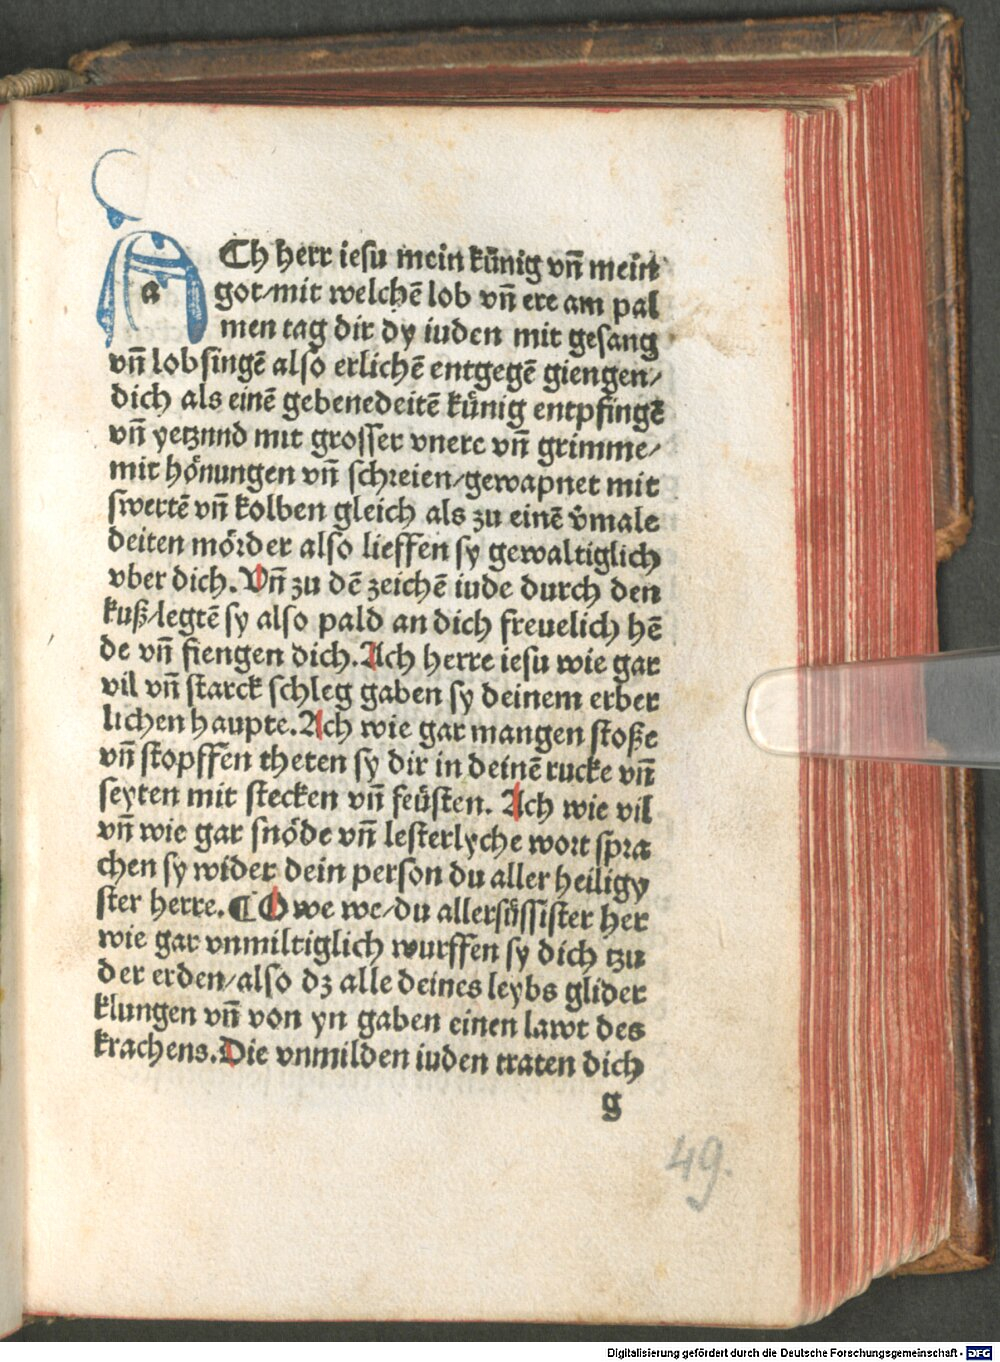 ACh herr iesu mein künig vñ mein
a
got/mit welchē lob vñ ere am pal
men tag dir dy iuden mit gesang
vñ lobsingē also erlichē entgegē giengen/
dich als einē gebenedeitē künig entpfingē
vñ yetzund mit grosser vnere vñ grimme/
mit hönungen vñ schreien/gewapnet mit
swertē vñ kolben gleich als zu einē v̄male
deiten mörder also lieffen sy gewaltiglich
vber dich. Vñ zu dē zeichē iude durch den
kuß/legtē sy also pald an dich freuelich hē
de vñ fiengen dich. Ach herre iesu wie gar
vil vñ starck schleg gaben sy deinem erber
lichen haupte. Ach wie gar mangen stoße
vñ stopffen theten sy dir in deinē rucke vñ
seyten mit stecken vñ feüsten. Ach wie vil
vñ wie gar snöde vñ lesterlyche wort spra
chen sy wider dein person du aller heiligy
ster herre. ¶ O we we/du allersüssister her
wie gar vnmiltiglich wurffen sy dich tzu
der erden/also dz alle deines leybs glider
klungen vñ von yn gaben einen lawt des
krachens. Die vnmilden iuden traten dich
g
49.
Digitalisierung gefördert durch die Deutsche Forschungsgemeinschaft - DFG